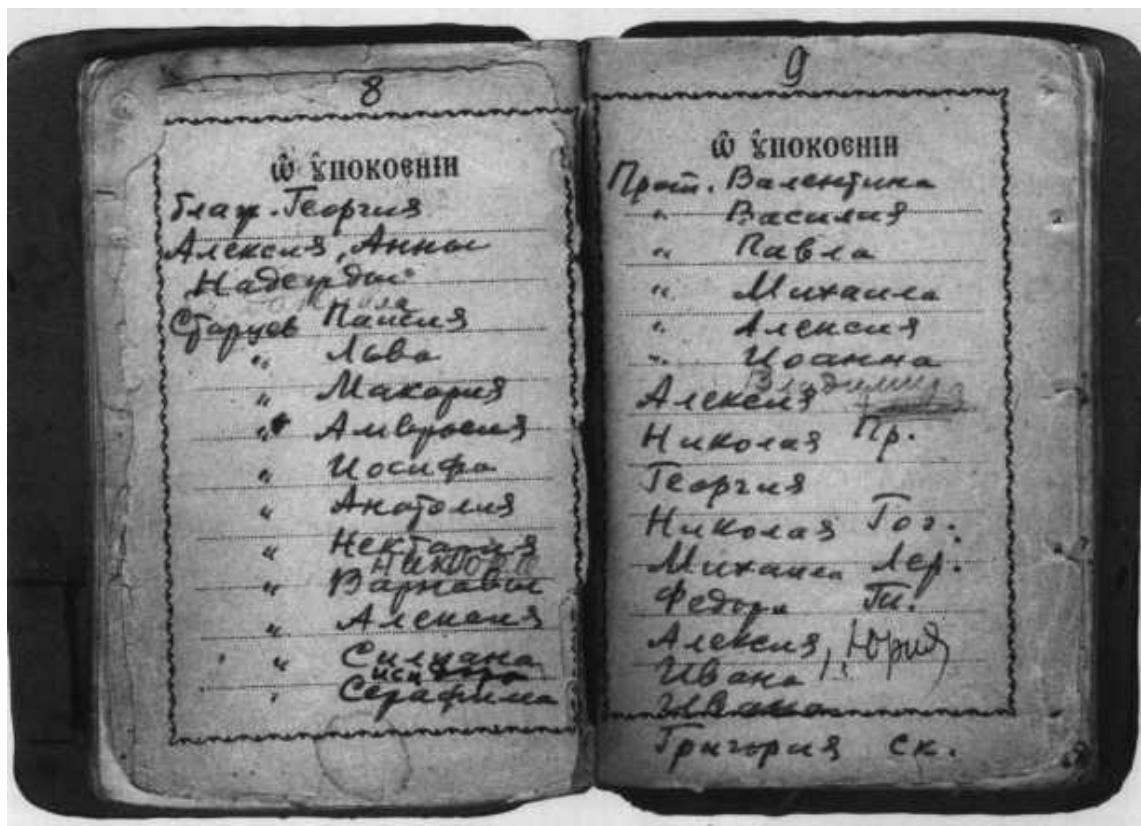 8
Ѡ҃ ᲂу҆покоєнїи
Блаж. Георгия
Алексия, Анны
Надежды
Старцев Паисия
" Льва
" Макария
" Амвросия
" Иосифа
" Анатолия
" Нектария
" Варнавы
" Алексия
" Силуана
Исидора
" Серафима
9
Ѡ҃ ᲂу҆покоєнїи
Прот. Валентина
" Василия
" Павла
" Михаила
" Алексия
" Иоанна
Владимира
Алексия
Николая Пр.
Георгия
Николая Гог.
Михаила Лер.
Федора Тт.
Алексия, Юрия
Ивана
Ивана
Григория ск.